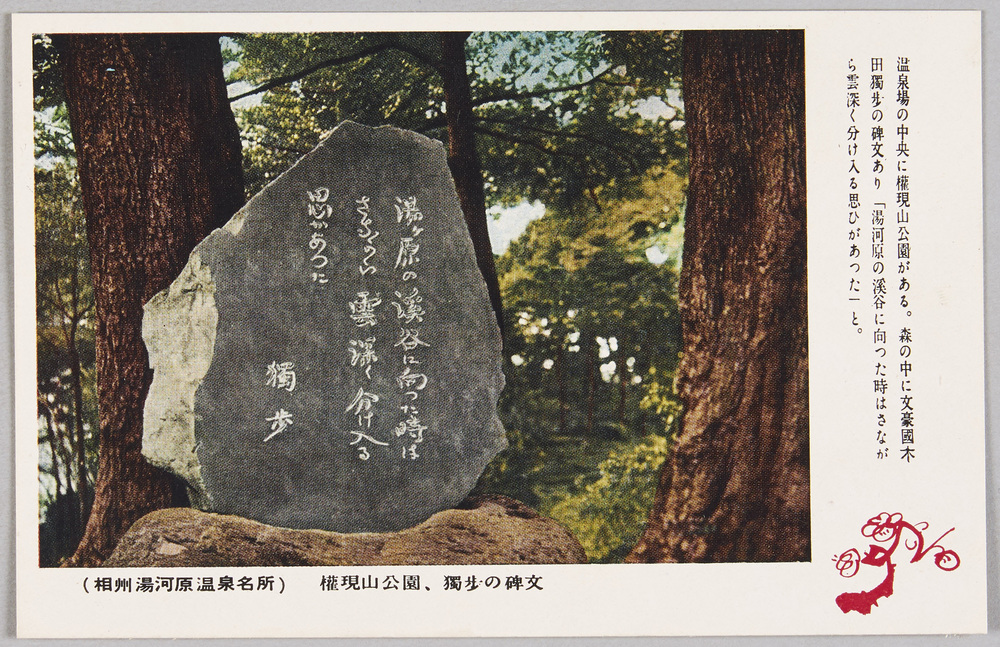 温泉場の中央に權現山公園がある。森の中に文豪國木
田獨步の碑文あり「湯河原の溪谷に向つた時はさなが
ら雲深く分け入る思ひがあつた」と。
湯ヶ原の溪谷に向つた時は
さながら 雲深く分け入る
思があつた
獨步
(相州湯河原温泉名所) 權現山公園、獨步の碑文